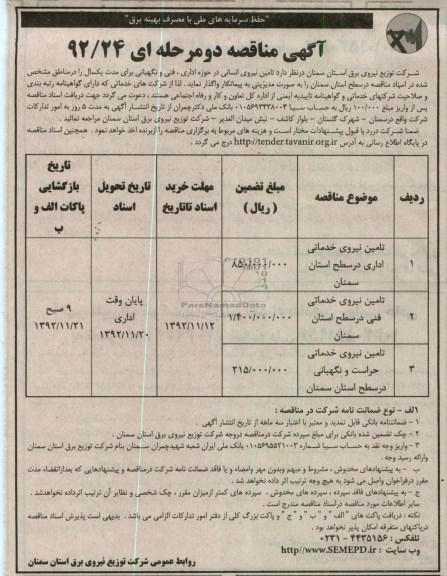 "حفظ سرمایه های ملی با مصرف بهینه برق"
آگهی مناقصه دو مرحله ای ۹۲/۲۴
شرکت توزیع نیروی برق استان سمنان درنظر دارد تامین نیروی انسانی در حوزه اداری ، فنی و نگهبانی برای مدت یکسال را درمناطق مشخص
شده در اسناد مناقصه درسطح استان سمنان را به صورت مدیریتی به پیمانکار واگذار نماید. لذا از شرکت های خدماتی که دارای گواهینامه رتبه بندی
و صلاحیت شرکتهای خدماتی و گواهینامه تاییدیه ایمنی از اداره کل تعاون و کار و رفاه اجتماعی هستند ، دعوت می گردد جهت دریافت اسناد مناقصه
پس از واریز مبلغ ۱۰۰/۰۰۰ ریال به حساب سیبا ۰۱۰۵۶۹۳۳۳۸۰۰۲ بانک ملی دکترچمران از تاریخ انتشار آگهی به مدت ۵ روز به امور تدارکات
شرکت واقع درسمنان - شهرک گلستان - بلوار کاشف - نبش میدان الغدیر - شرکت توزیع نیروی برق استان سمنان مراجعه نمایند .
ضمنا شرکت دررد یا قبول پیشنهادات مختار است و هزینه های مربوط به برگزاری مناقصه را ازبرنده اخذ خواهد نمود . همچنین اسناد مناقصه
در پایگاه اطلاع رسانی به آدرس http://tender.tavanir.org.ir درج می گردد .
ردیف
موضوع مناقصه
مبلغ تضمین ( ریال )
مهلت خرید اسناد تاتاریخ
تاریخ تحویل اسناد
تاریخ بازگشایی پاکات الف و ب
۱
تامین نیروی خدماتی اداری درسطح استان سمنان
۸۵۰/۰۰۰/۰۰۰
۲
تامین نیروی خدماتی فنی درسطح استان سمنان
۱/۴۰۰/۰۰۰/۰۰۰
۱۳۹۲/۱۱/۱۲
پایان وقت اداری ۱۳۹۲/۱۱/۲۰
۹ صبح ۱۳۹۲/۱۱/۲۱
۳
تامین نیروی خدماتی حراست و نگهبانی درسطح استان سمنان
۲۱۵/۰۰۰/۰۰۰
ParsNamadData
الف - نوع ضمانت نامه شرکت در مناقصه :
۱ - ضمانتنامه بانکی قابل تمدید و معتبر با اعتبار سه ماهه از تاریخ انتشار آگهی .
۲ - چک تضمین شده بانکی برای مبلغ سپرده شرکت درمناقصه دروجه شرکت توزیع نیروی برق استان سمنان .
۳ - واریز وجه نقد به حساب سیبا شماره ۰۱۰۵۶۹۵۵۲۱۰۰۳ بانک ملی ایران شعبه شهیدچمران سمنان بنام شرکت توزیع برق استان سمنان
وارائه رسید وجه .
ب - به پیشنهادهای مخدوش ، مشروط و مبهم وبدون مهر وامضاء و یا فاقد ضمانت نامه شرکت درمناقصه و پیشنهادهایی که بعدازانقضاء مدت
مقرر درفراخوان واصل می شود به هیچ وجه ترتیب اثر داده نخواهد شد .
ج - به پیشنهادهای فاقد سپرده ، سپرده های مخدوش ، سپرده های کمتر ازمیزان مقرر ، چک شخصی و نظایر آن ترتیب اثرداده نخواهدشد .
سایر اطلاعات مورد مناقصه دراسناد مناقصه مندرج است .
نکته : دریافت پاکت های " الف " و " ب " و " ج " و پاکت بزرگ کلی از دفتر امور تدارکات الزامی می باشد . بدیهی است پذیرش اسناد مناقصه
درپاکتهای متفرقه امکان پذیر نخواهد بود .
تلفکس : ۴۴۳۵۱۵۶ - ۰۲۳۱
وب سایت : http//www.SEMEPD.ir
روابط عمومی شرکت توزیع نیروی برق استان سمنان